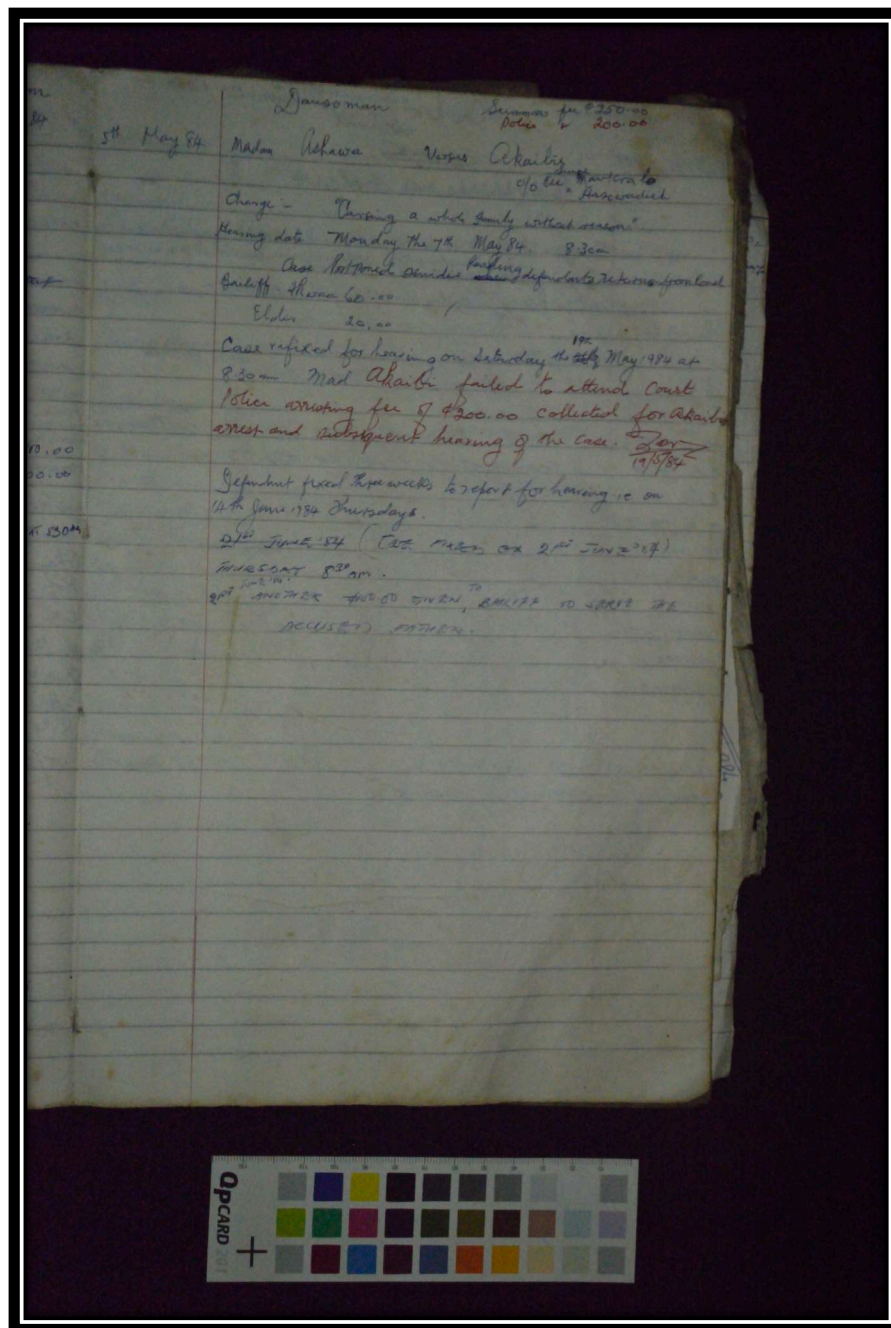 Dansoman Summons fee ¢250.00
Police " 200.00
5th May 84 Madam Ashawa Versus Akaibi
c/o
Charge:- "Cursing a whole family without reason"
Hearing date Monday the 7th May 84. 8.30am
Case Postponed pending defendants return from
Bailiff 60.00
Elders 20.00
Case refixed for hearing on Saturday the 19th May 1984 at
8.30am Mad Akaibi failed to attend Court
Police arresting fee of ¢200.00 collected for Akaibi
arrest and subsequent hearing of the case.
19/5/84
Defendant fixed three weeks to report for hearing i.e on
14th June 1984 Thursdays.
21st JUNE '84 ( ON 21st JUNE '84)
THURSDAY 8.30 am.
21st JUNE '84 ANOTHER GIVEN TO BAILIFF TO SERVE THE
ACCUSED FATHER.
QPCARD 201